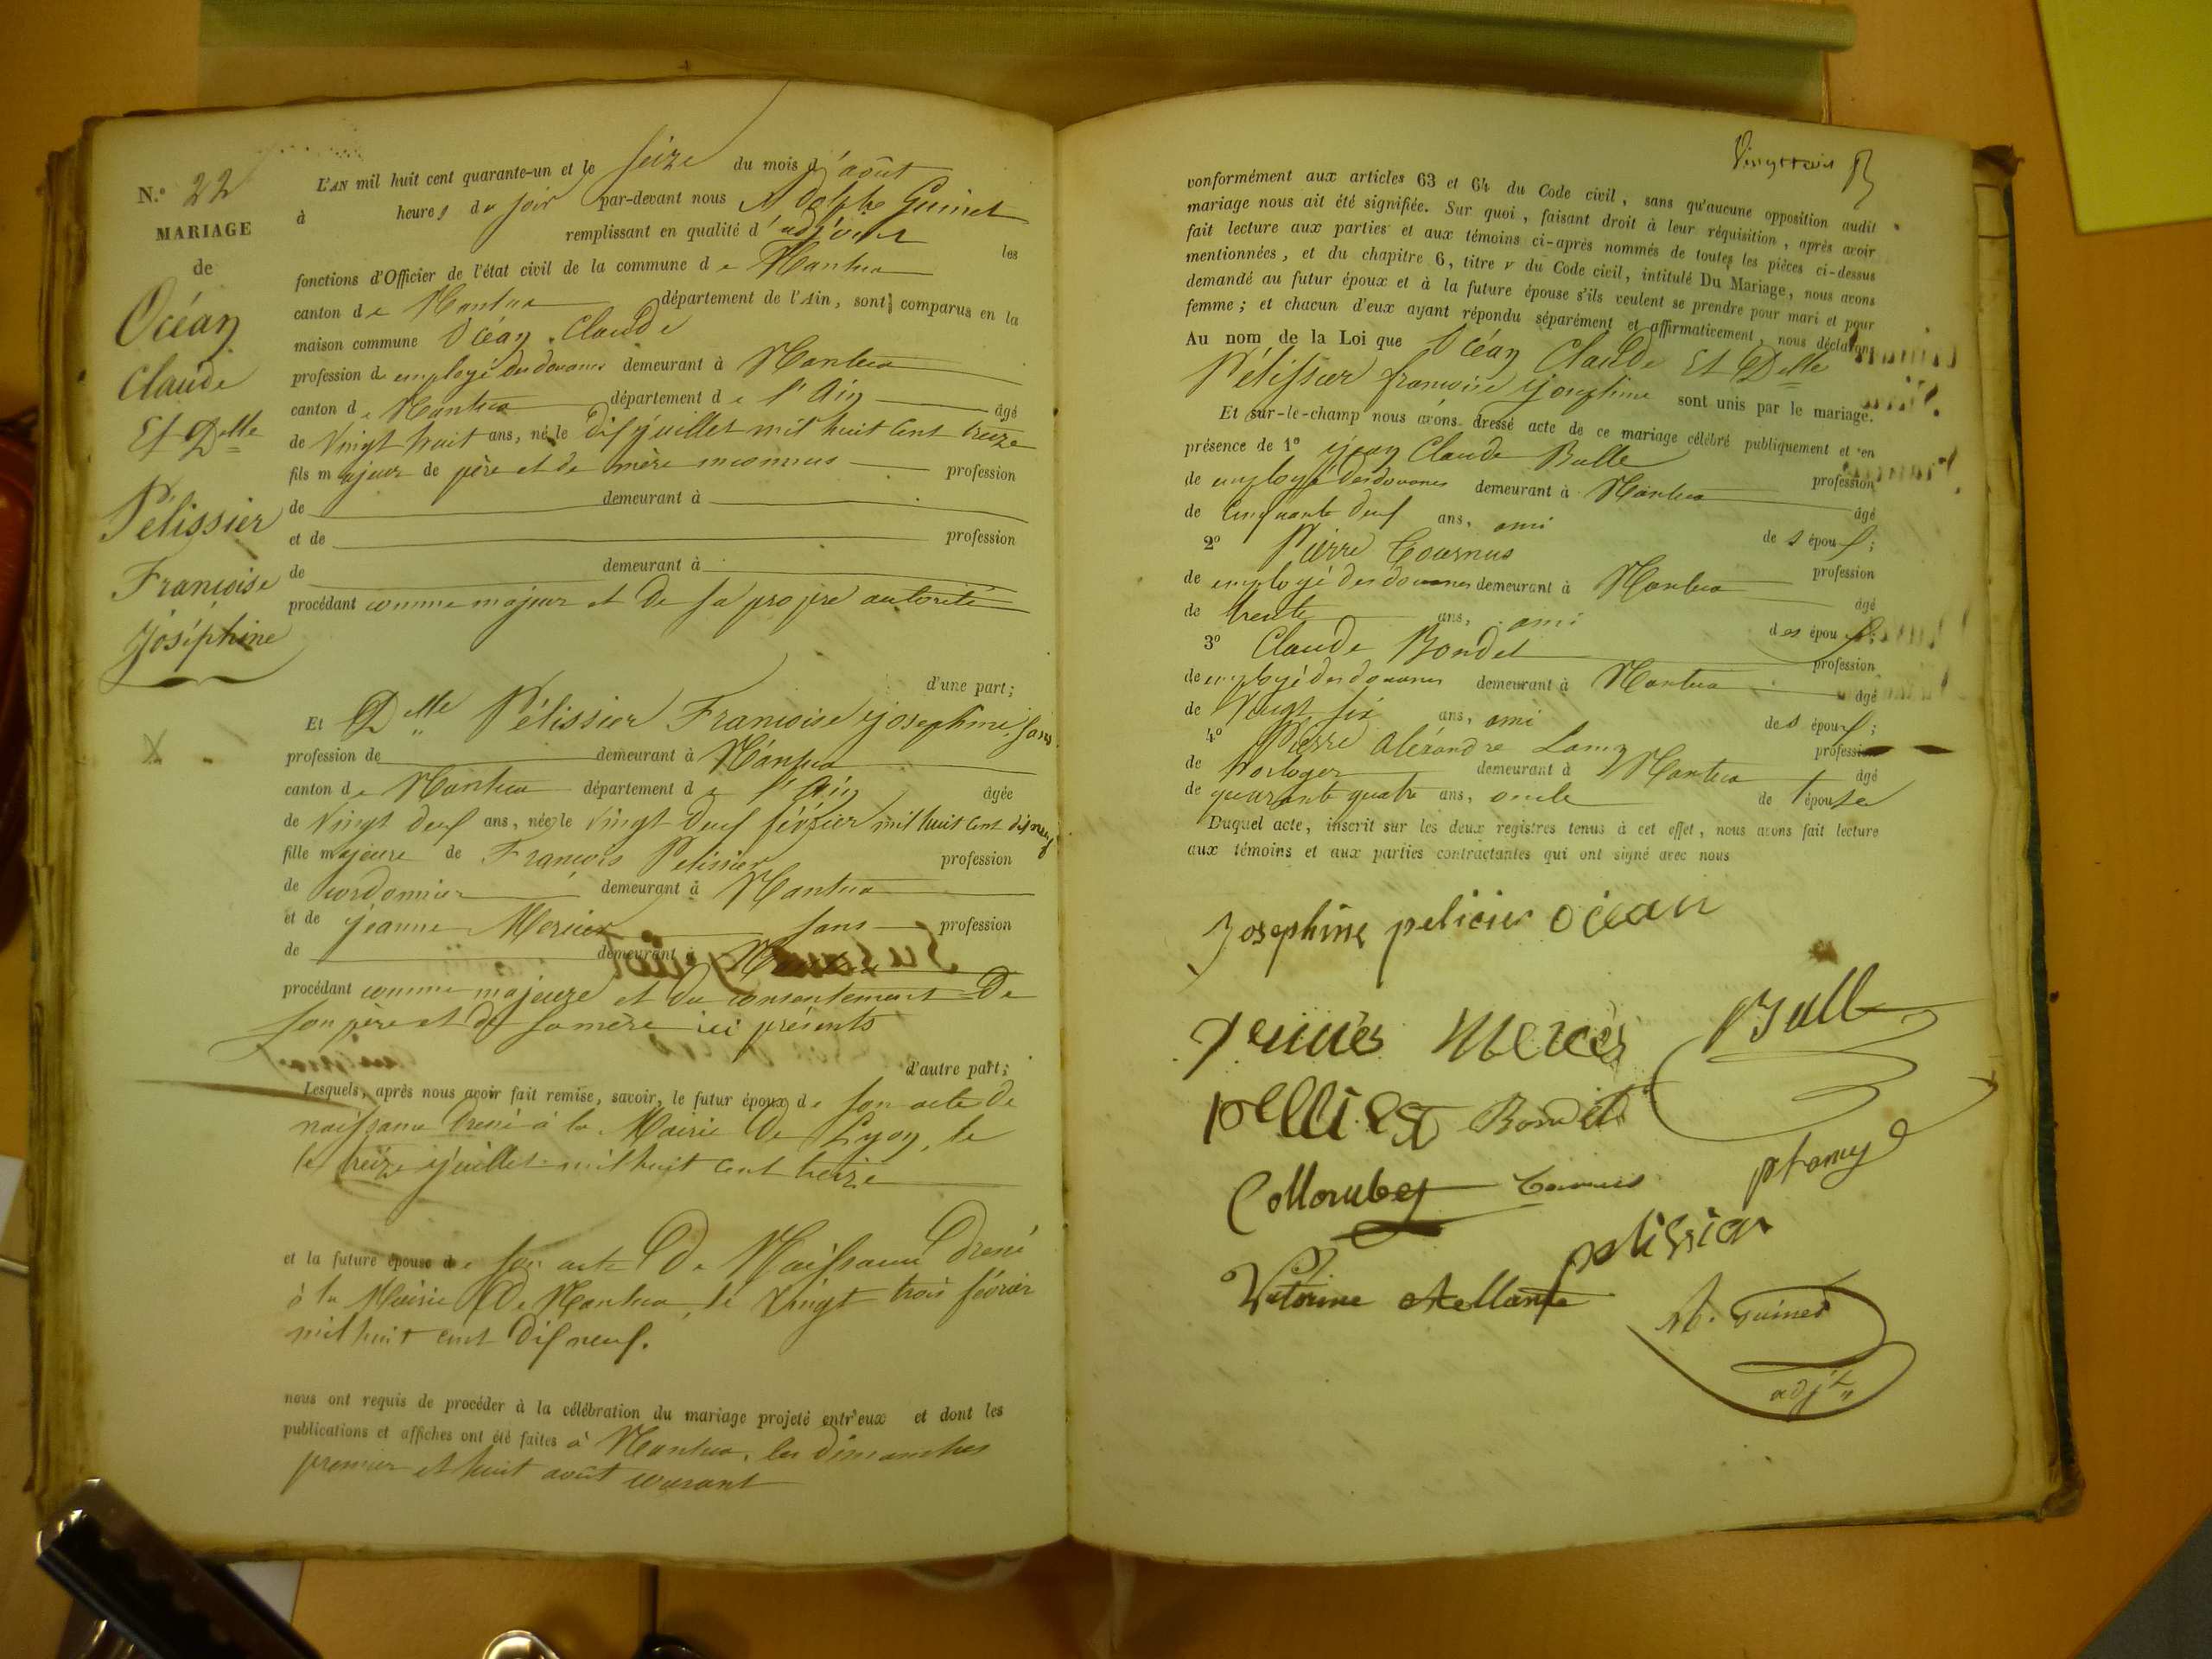 N.° 22
MARIAGE
de
Océan
Claude
Et Dlle
Pélissier
Francoise
Joséphine
L'AN mil huit cent quarante-un et le seize du mois d'août
à heures du soir par-devant nous Adolphe Guinet
remplissant en qualité d'adjoint les
fonctions d'Officier de l'état civil de la commune de Nantua
canton de Nantua département de l'Ain, sont comparus en la
maison commune Océan Claude
profession d employé des douanes demeurant à Nantua
canton de Nantua département de l'Ain âgé
de vingt huit ans, né le dix juillet mil huit cent treize
fils majeur de père et de mère inconnus profession
de demeurant à
et de profession
de demeurant à
procédant comme majeur et de sa propre autorité
d'une part;
Et Dlle Pélissier Francoise josephine, sans
profession de demeurant à Nantua
canton de Nantua département de l'Ain âgée
de vingt deux ans, née le vingt deux février mil huit cent dix neuf
fille majeure de François Pelissier profession
de cordonnier demeurant à Nantua
et de jeanne Mercier sans profession
de demeurant à Nantua
procédant comme majeure et du consentement de
son père et de sa mère ici présents
d'autre part;
Lesquels, après nous avoir fait remise, savoir, le futur époux de son acte de
naissance dressé à la Mairie de Lyon, le
le treize juillet mil huit cent treize
et la future épouse de son acte De Naissance Dressé
à la Mairie De Nantua, le vingt trois février
mil huit cent dix neuf.
nous ont requis de procéder à la célébration du mariage projeté entr'eux et dont les
publications et affiches ont été faites à Nantua, les dimanches
premier et huit août courant
Vingttrois
conformément aux articles 63 et 64 du Code civil, sans qu'aucune opposition audit
mariage nous ait été signifiée. Sur quoi, faisant droit à leur réquisition, après avoir
fait lecture aux parties et aux témoins ci-après nommés de toutes les pièces ci-dessus
mentionnées, et du chapitre 6, titre v du Code civil, intitulé Du Mariage, nous avons
demandé au futur époux et à la future épouse s'ils veulent se prendre pour mari et pour
femme; et chacun d'eux ayant répondu séparément et affirmativement, nous déclarons
Au nom de la Loi que Océan Claude Et Dlle
Pélissier francoise josephine sont unis par le mariage.
Et sur-le-champ nous avons dressé acte de ce mariage célébré publiquement et en
présence de 1° jean Claude Bulle profession
de employé des douanes demeurant à Nantua âgé
de Cinquante deux ans, ami des époux;
2° Pierre Tournus profession
de employé des douanes demeurant à Nantua âgé
de trente ans, ami des époux;
3° Claude Bondet profession
de employé des douanes demeurant à Nantua âgé
de Vingt six ans, ami des époux;
4° Pierre Aléxandre Lamy profession
de horloger demeurant à Nantua âgé
de quarante quatre ans, oncle de l'épouse
Duquel acte, inscrit sur les deux registres tenus à cet effet, nous avons fait lecture
aux témoins et aux parties contractantes qui ont signé avec nous
Josephine pelicier océan
Bulle
Bondet
Tournus
pelissier
A. Guinet
adjt